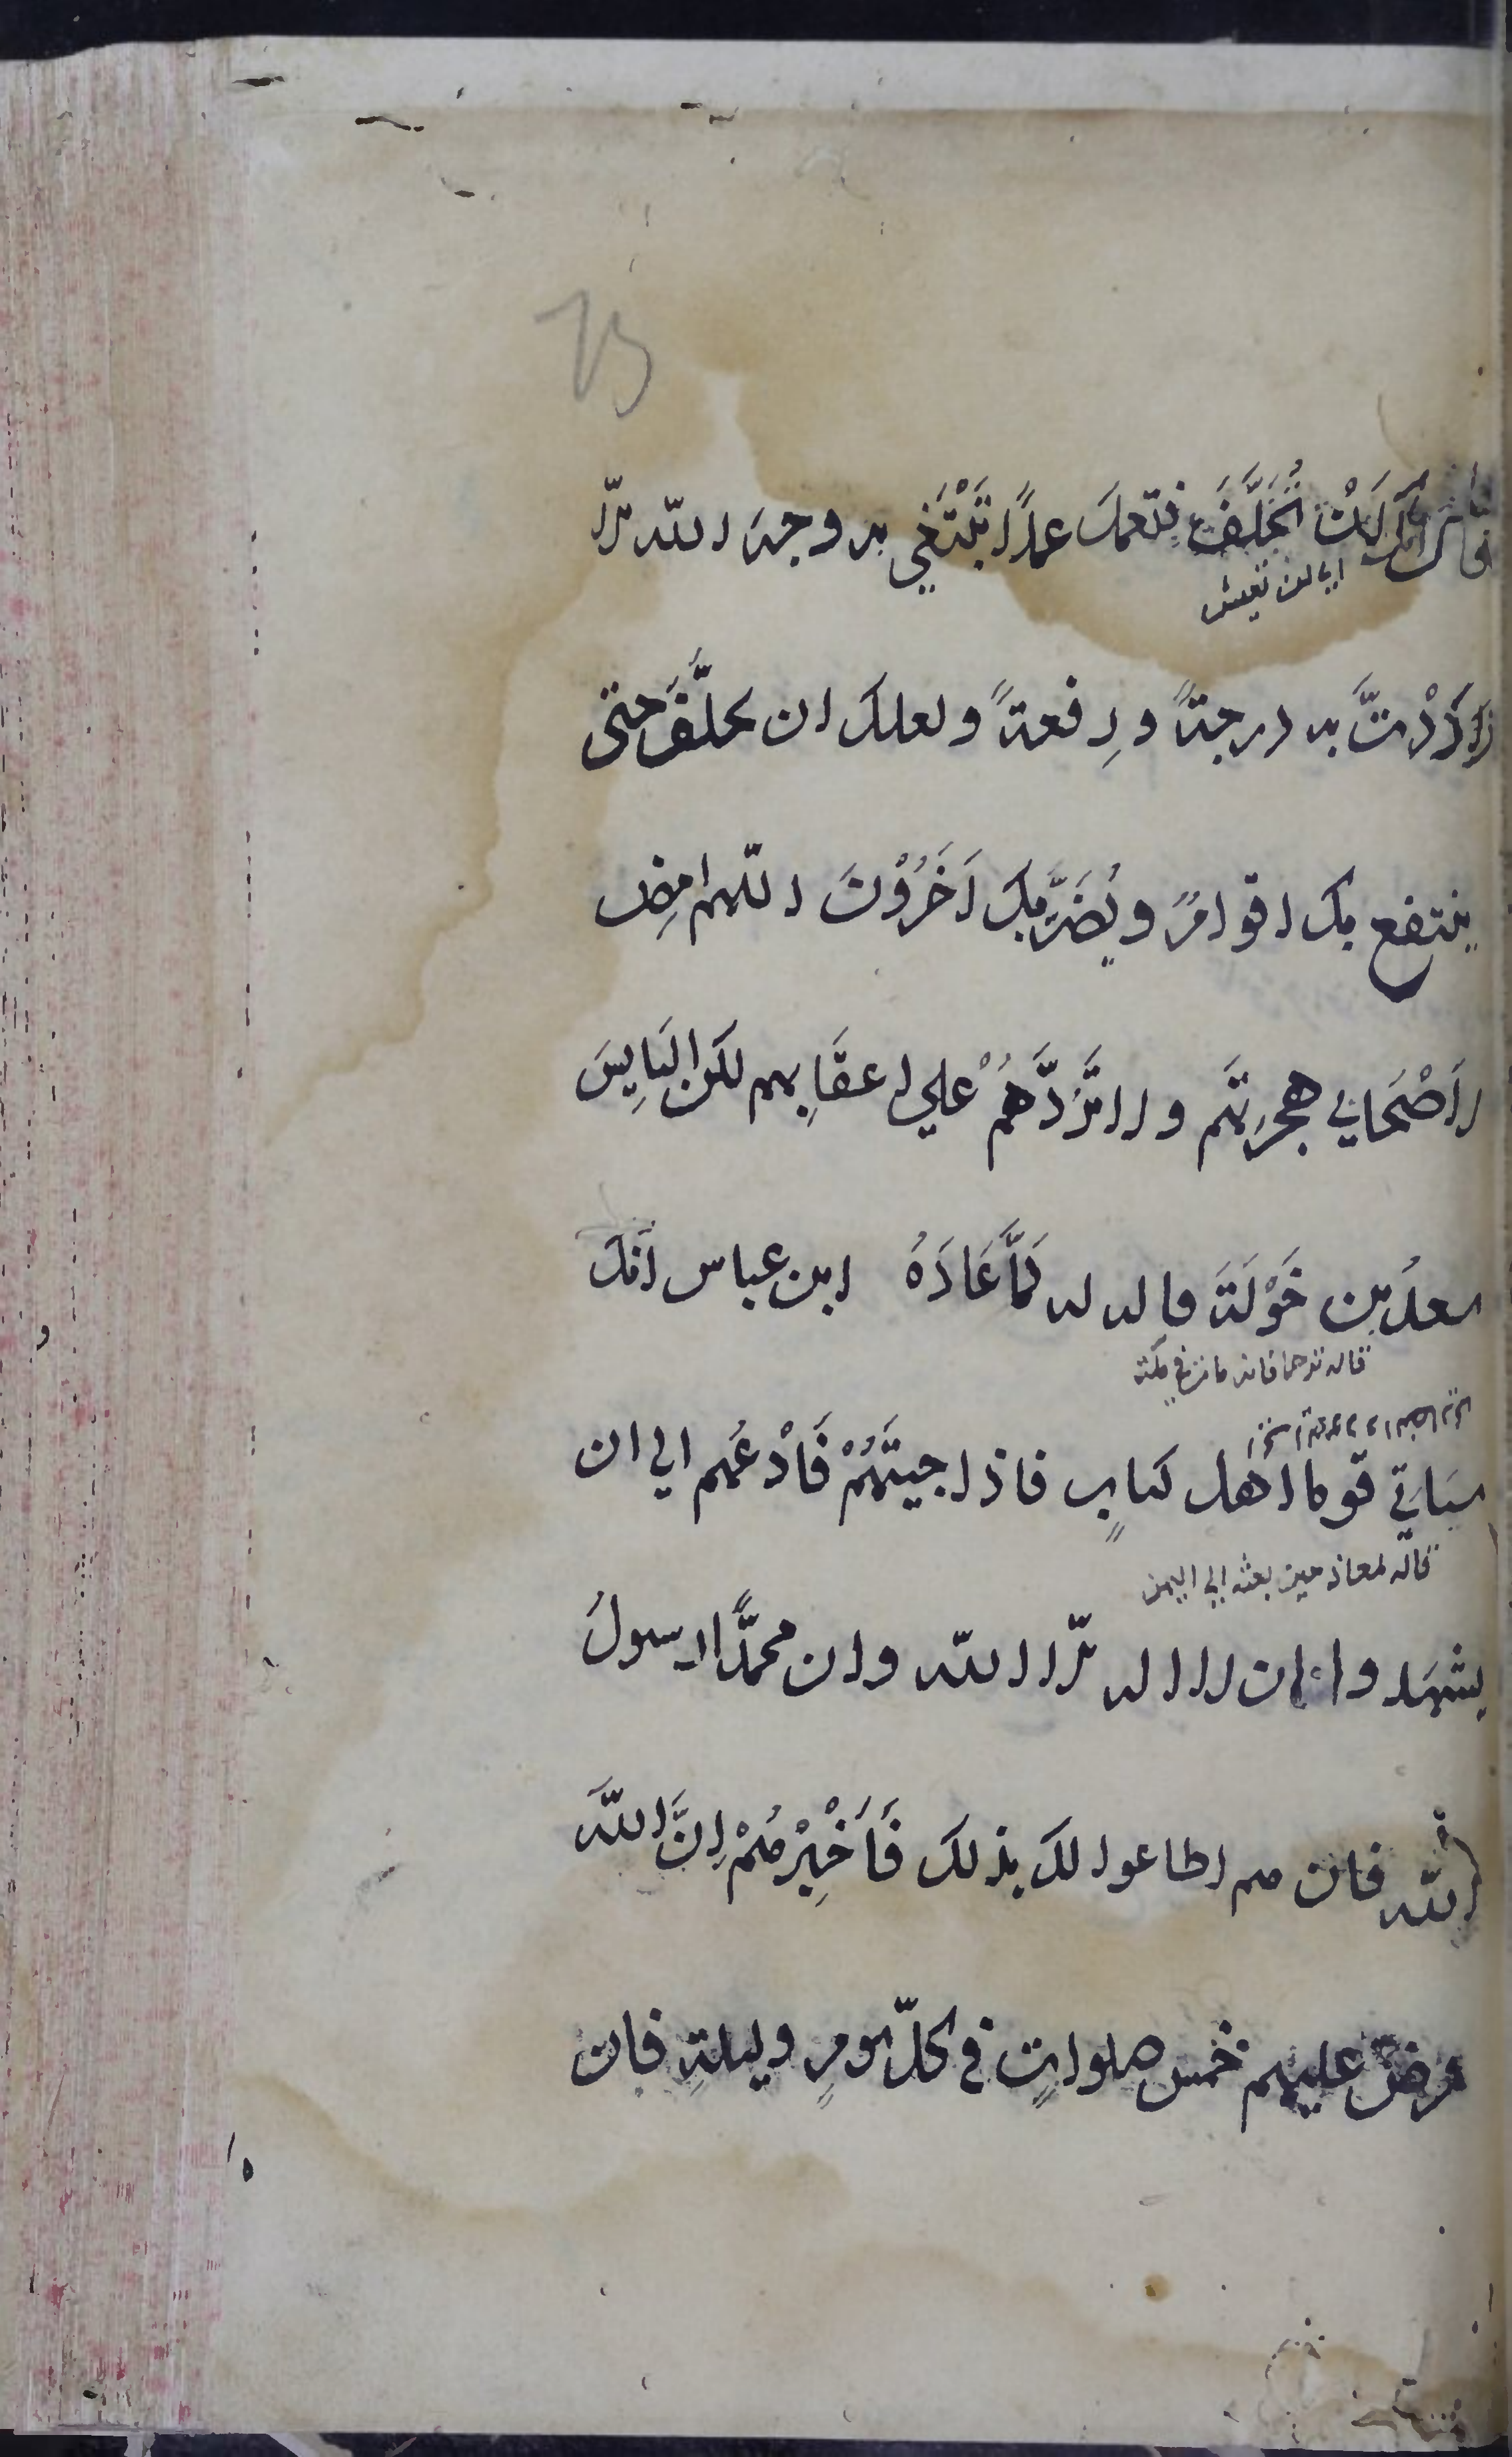 لَنْ تُخَلَّفَ فتعملَ عملاً تَبْتَغِي به وجهَ الله الّا
اي لن تعيش
ازْدَدْتَ به درجةً ورِفعةً ولعلك ان تخلَّفَ حتى
ينتفع بك اقوامٌ ويُضَرَّ بِكَ اَخَرُوْنَ اللّهم امضِ
لِاَصْحَابِي هجرتَهم ولا تَرُدَّهُمْ علي اعقَابِهم لكن البَايِسَ
سعدُ بن خَوْلَةَ قاله له لَمَّا عَادَهُ ابن عباس اِنَّكَ
قاله ترحما فانه مات في مكة
سَتاتي قوما اهل كتابٍ فاذا جيتَهُمْ فَادْعُهم الي ان
قاله لمعاذ حين بعثه الي اليمن
يشهَدوا ان لا اله الّا الله وان محمدًا رسولُ
الله فان هم اطاعوا لك بذلك فَاَخْبِرْهُمْ اِنَّ اللهَ
فرض عليهم خمس صلواتٍ في كلّ يومٍ وليلةٍ فان